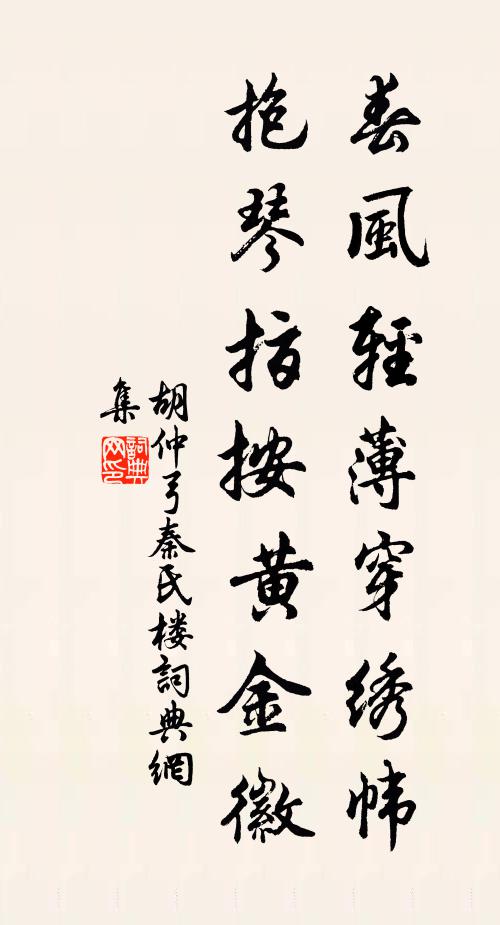 春風輕薄穿綉幃
抱琴指按黄金徽
胡仲弓秦氏楼詞典網
集
詞典網印